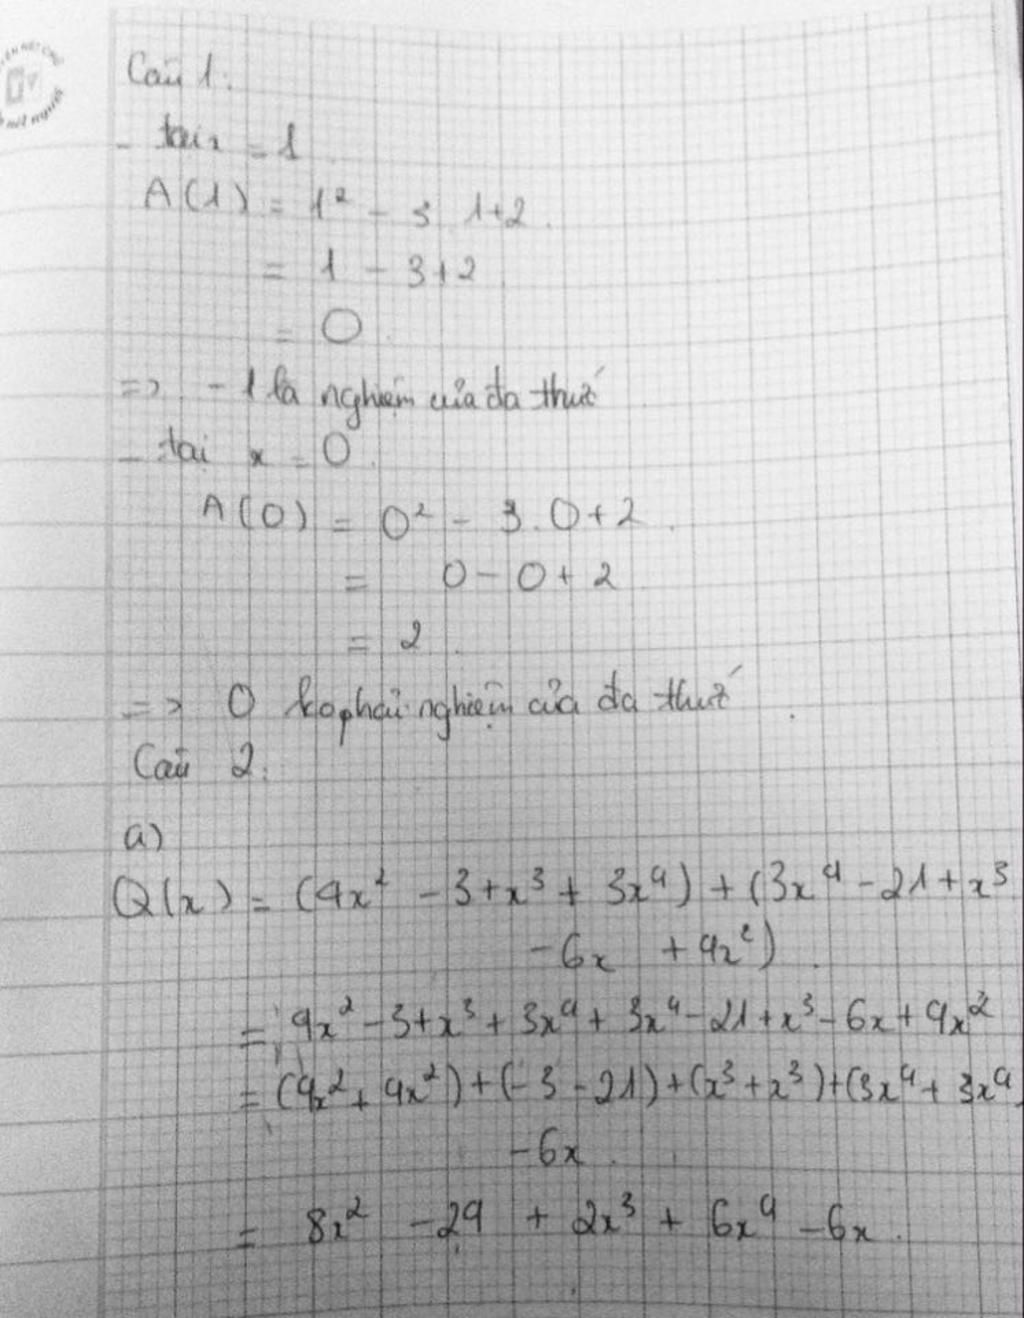 Câu 1.
- tại x = 1
A(1) = 1² - 3 1+2.
= 1 - 3+2
= 0.
=> -1 là nghiệm của đa thức
- tại x = 0.
A(0) = 0² - 3.0+2.
= 0-0+2
= 2.
=> 0 ko phải nghiệm của đa thức.
Câu 2.
a)
Q(x) = (4x² - 3+x³ + 3x⁴) + (3x⁴ - 21+x³
-6x + 4x²).
= 4x² - 3+x³ + 3x⁴ + 3x⁴ - 21+x³ - 6x + 4x²
= (4x² + 4x²) + (-3 - 21) + (x³ + x³) + (3x⁴ + 3x⁴)
-6x.
= 8x² - 24 + 2x³ + 6x⁴ - 6x.